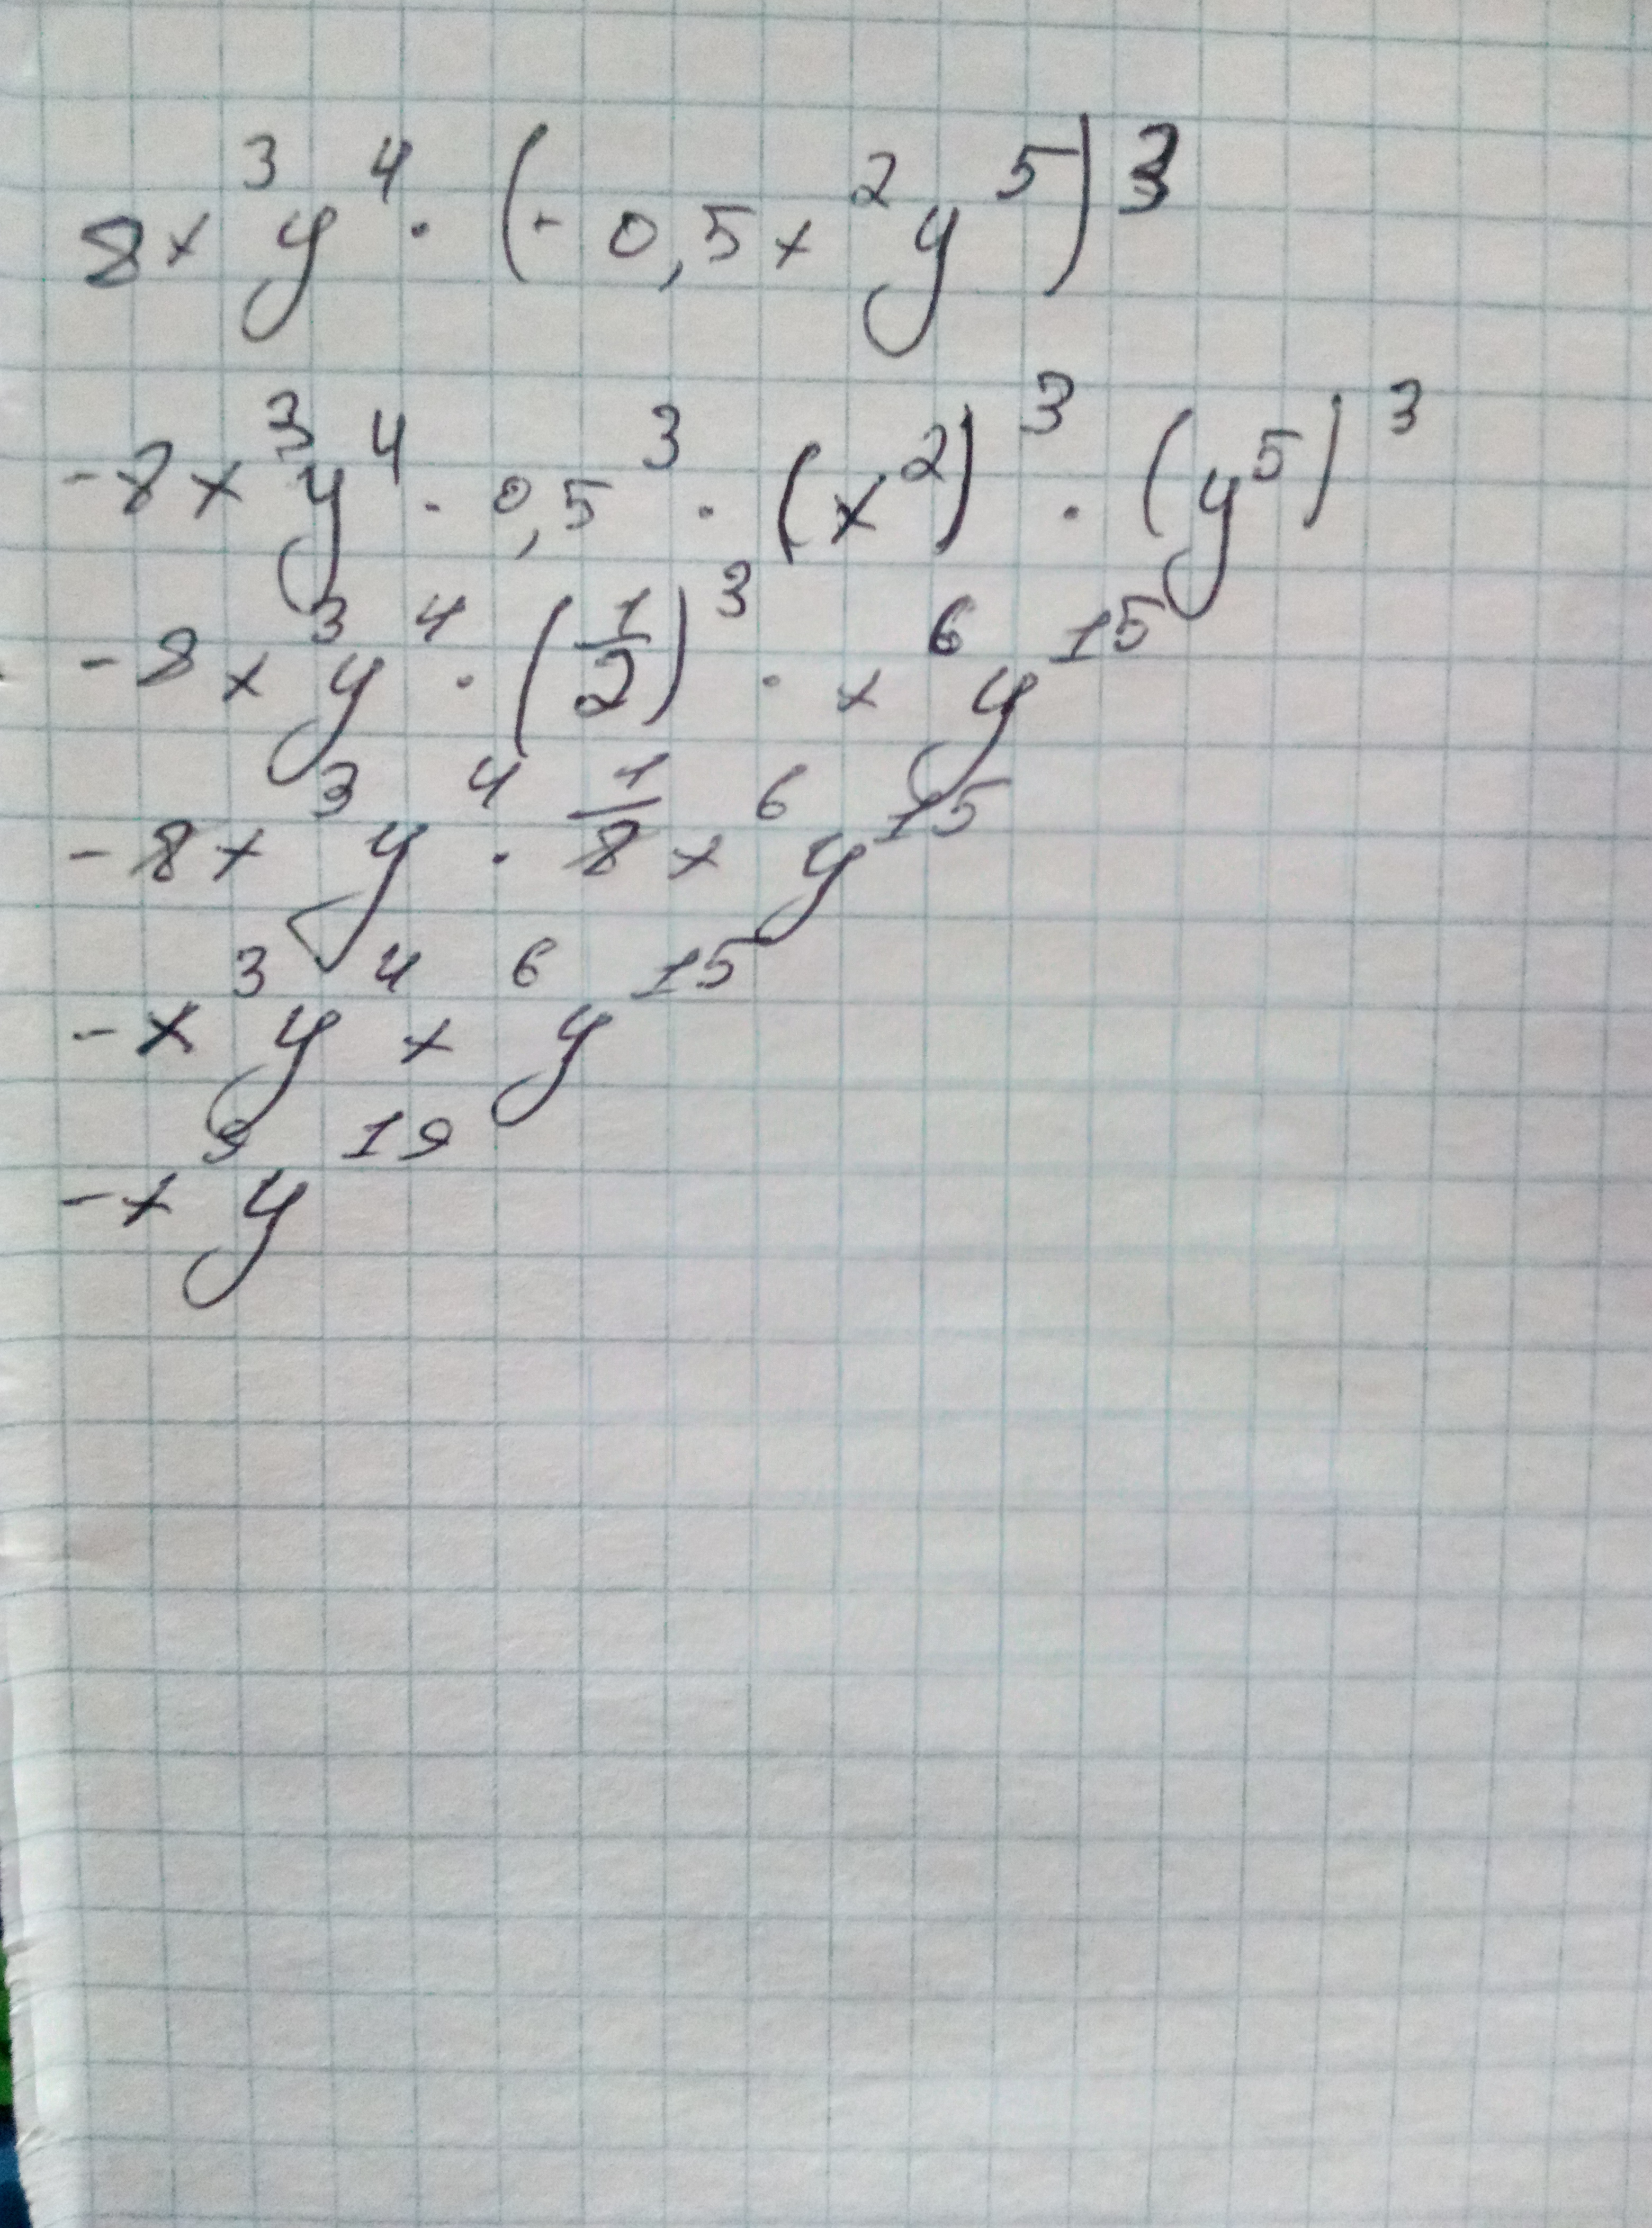 8x³y⁴ · (-0,5x²y⁵)³
-8x³y⁴ · 0,5³ · (x²)³ · (y⁵)³
-8x³y⁴ · (1/2)³ · x⁶y¹⁵
-8x³y⁴ · 1/8x⁶y¹⁵
-x³y⁴x⁶y¹⁵
-x⁹y¹⁹